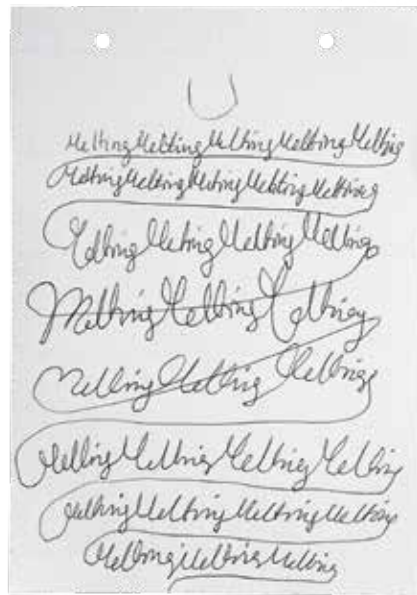 MeltingMeltingMeltingMeltingMelting
MeltingMeltingMeltingMeltingMelting
MeltingMeltingMeltingMelting
MeltingMeltingMelting
MeltingMeltingMelting
MeltingMeltingMeltingMelting
MeltingMeltingMeltingMelting
MeltingMeltingMelting